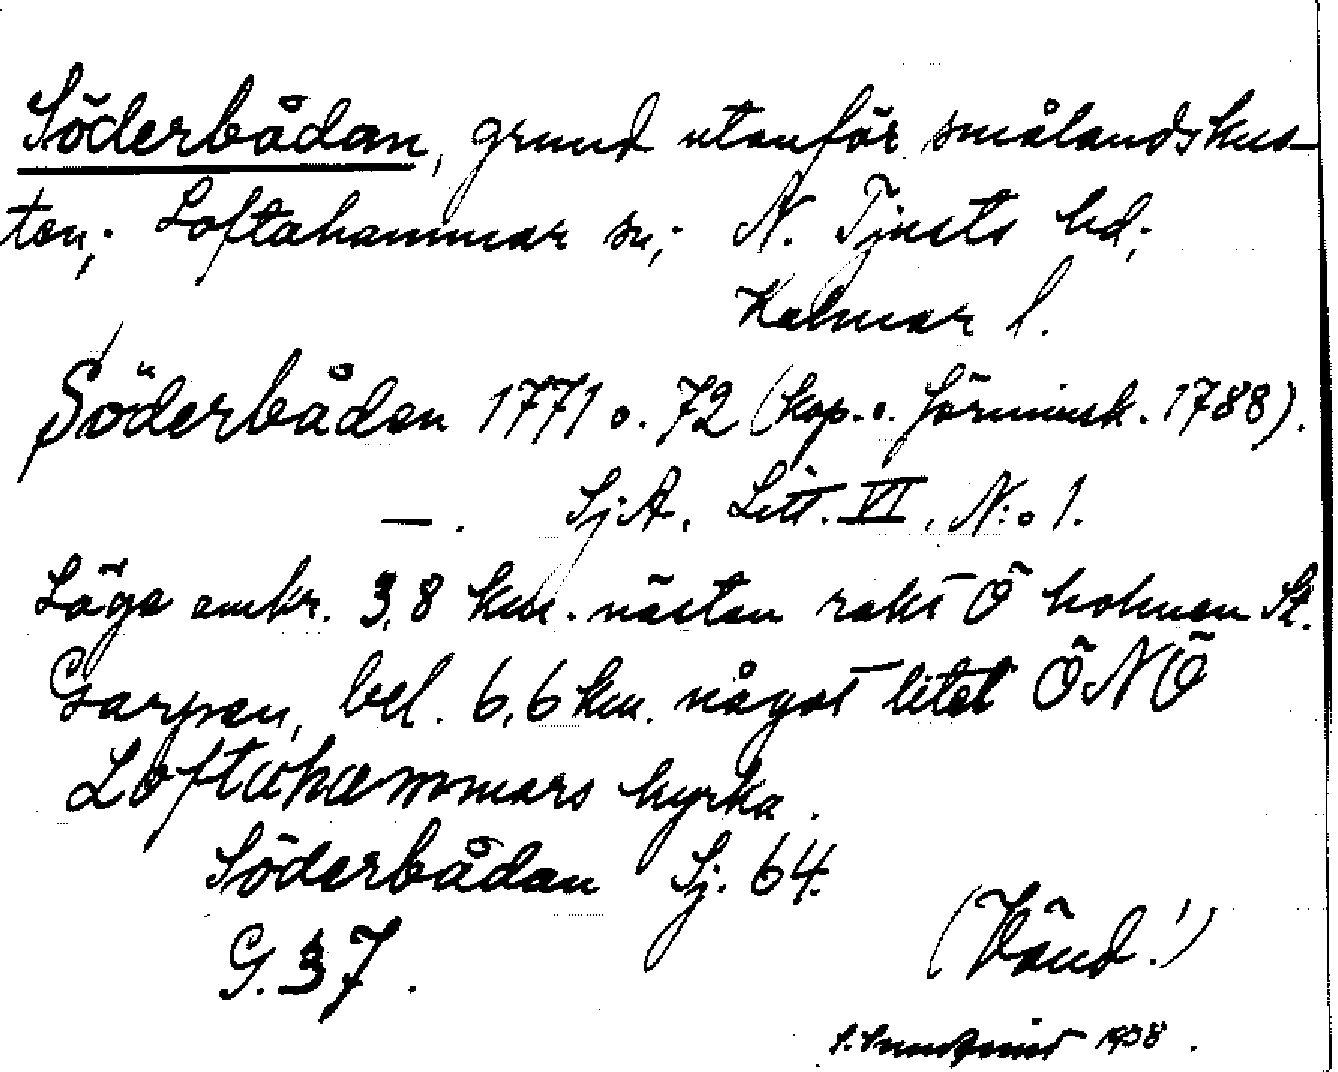 Söderbådan, grund utanför smålandskus-
ten; Loftahammar sn; N. Tjusts hd;
Kalmar l.
Söderbåden 1771 o. 72 (kop. o. förminsk. 1788).
—. SjA. Litt. VI. N:o 1.
Läge omkr. 3,8 km. nästan rakt Ö holmen St.
Garpen, bel. 6,6 km. något litet ÖNÖ
Loftahammars kyrka.
Söderbådan Sj. 64.
G. 37.
(Vänd!)
1938.